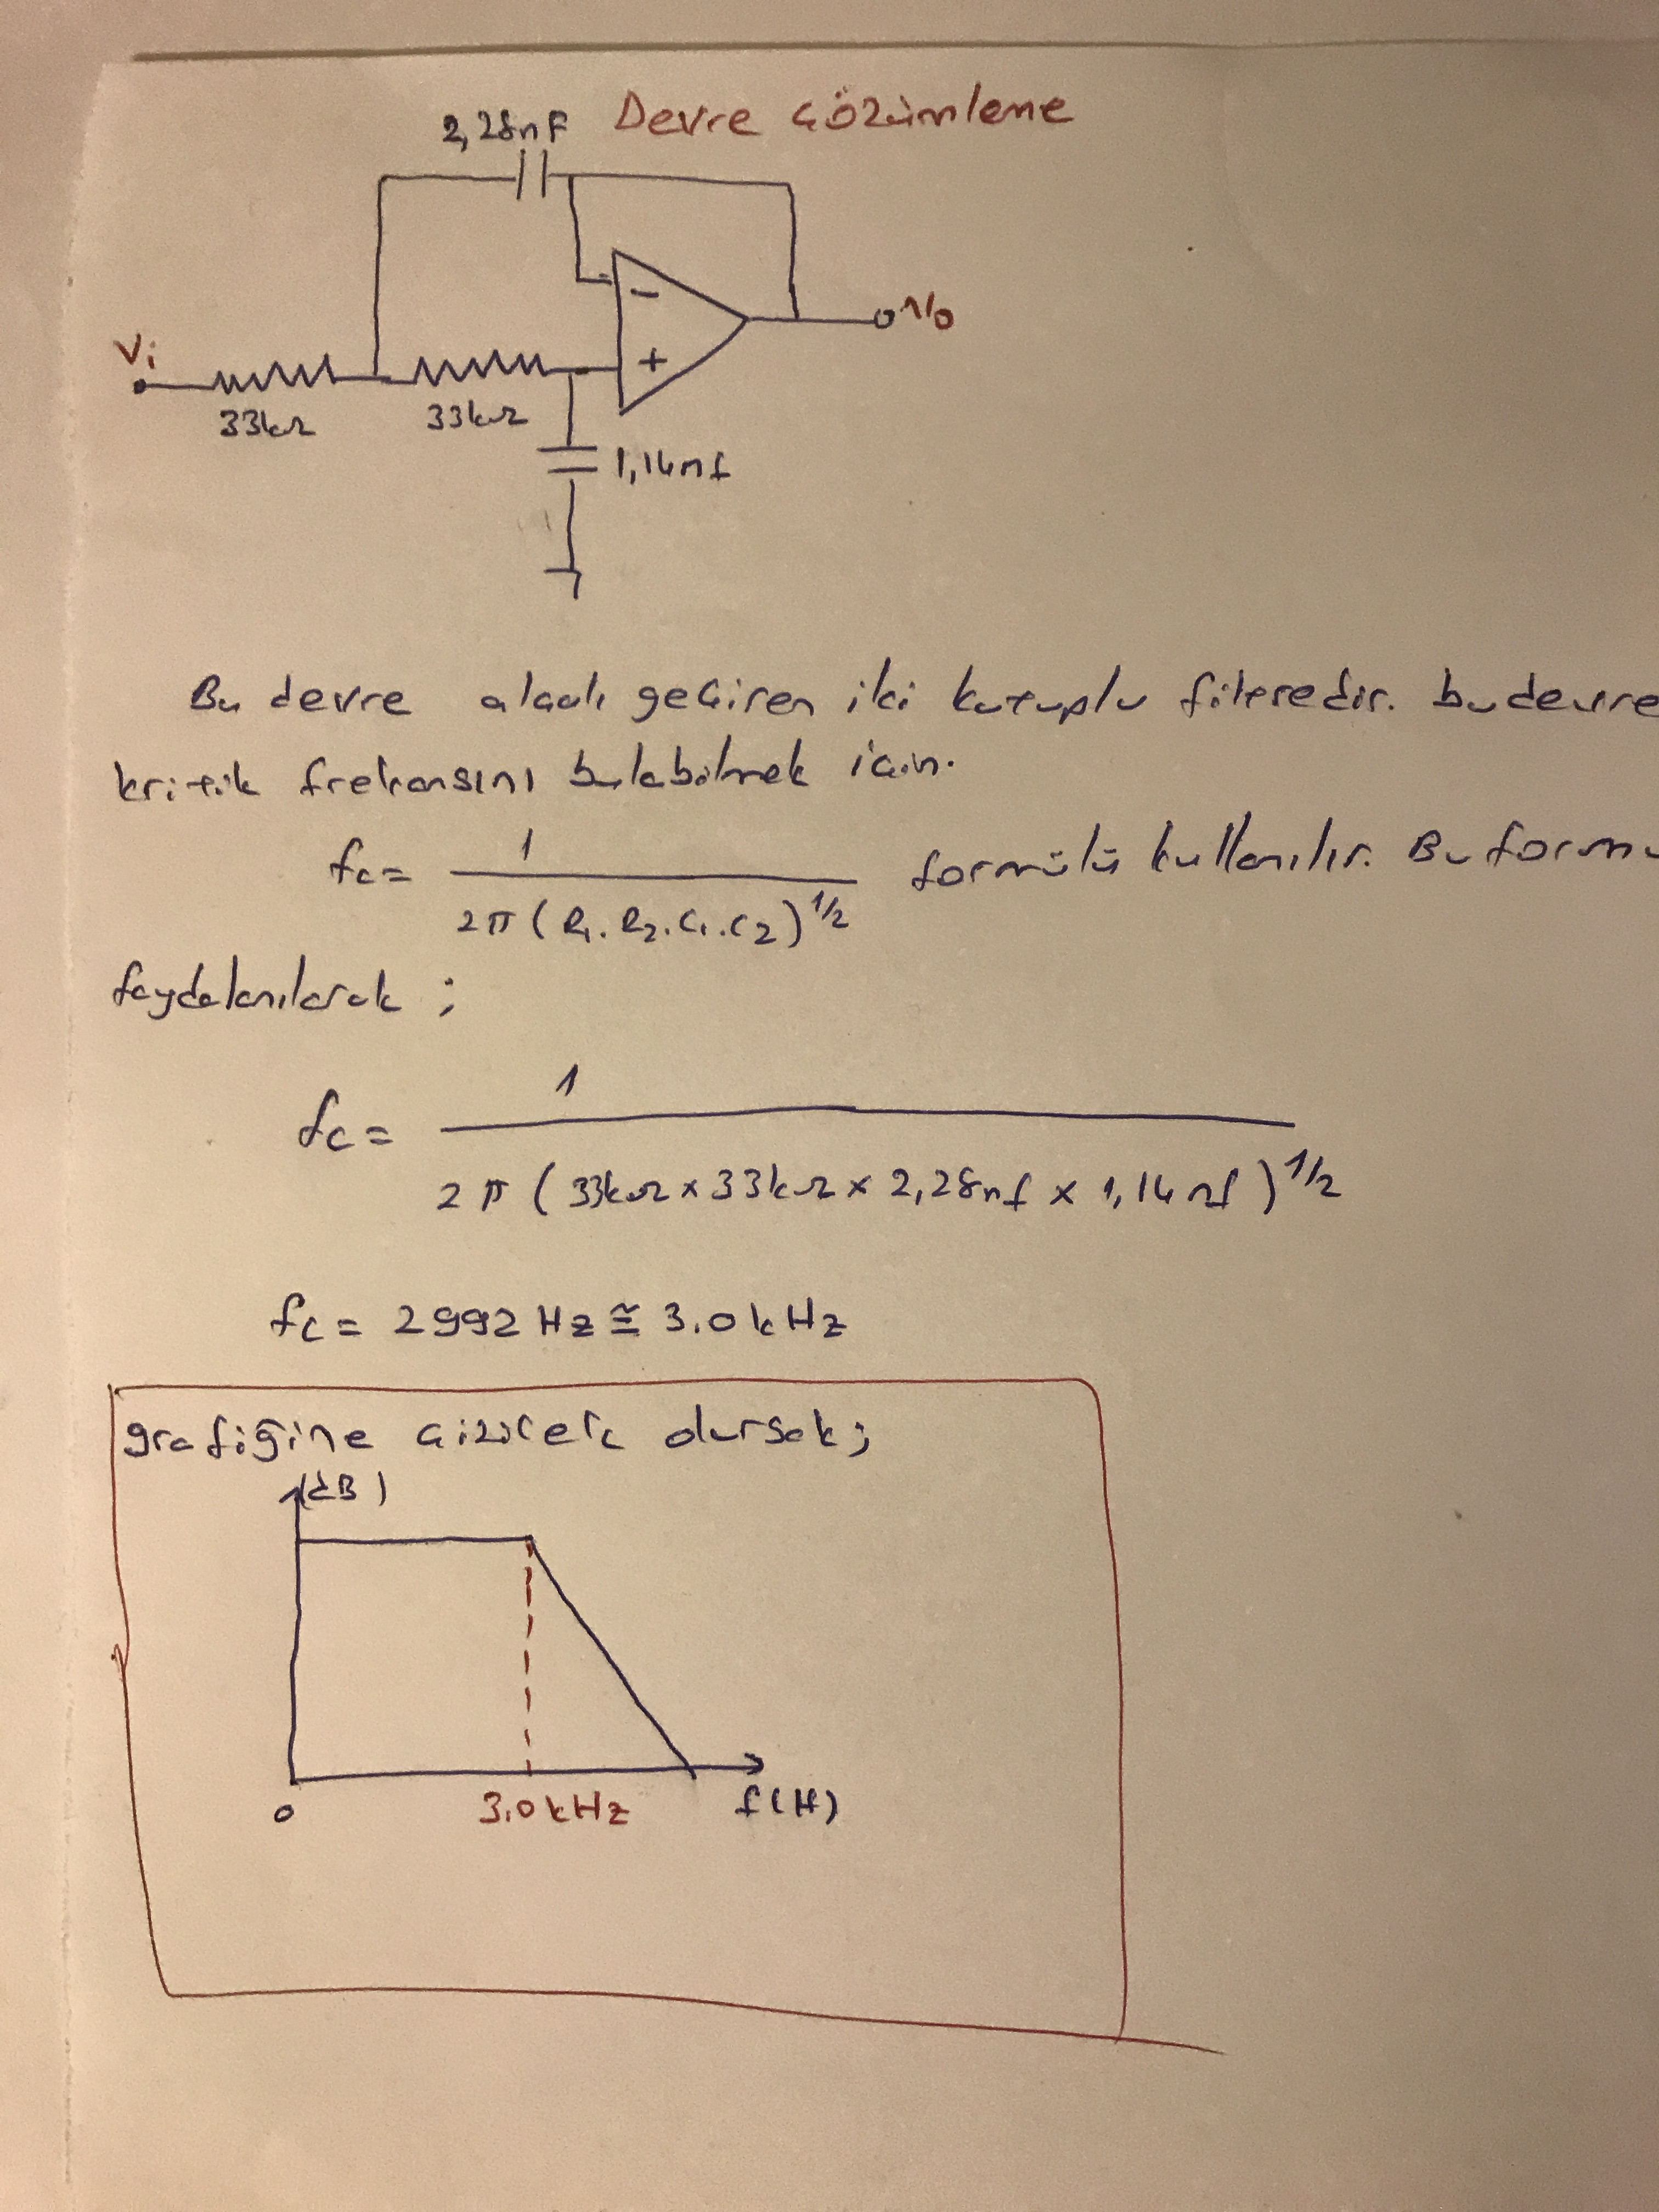 Devre Çözümleme
2,28nF
-
Vi
+
Vo
33kΩ
33kΩ
1,14nf
Bu devre alçak geçiren iki kutuplu filtredir. bu devre
kritik frekansını bulabilmek için.
fc = 1 / 2π (R1. R2. C1. C2)^1/2 formülü kullanılır. Bu formu
faydalanılarak ;
fc = 1 / 2π (33kΩ x 33kΩ x 2,28nf x 1,14nf)^1/2
fc = 2992 Hz ≅ 3.0 kHz
grafiğine çizicek olursak;
(dB)
0
3.0 kHz
f(H)